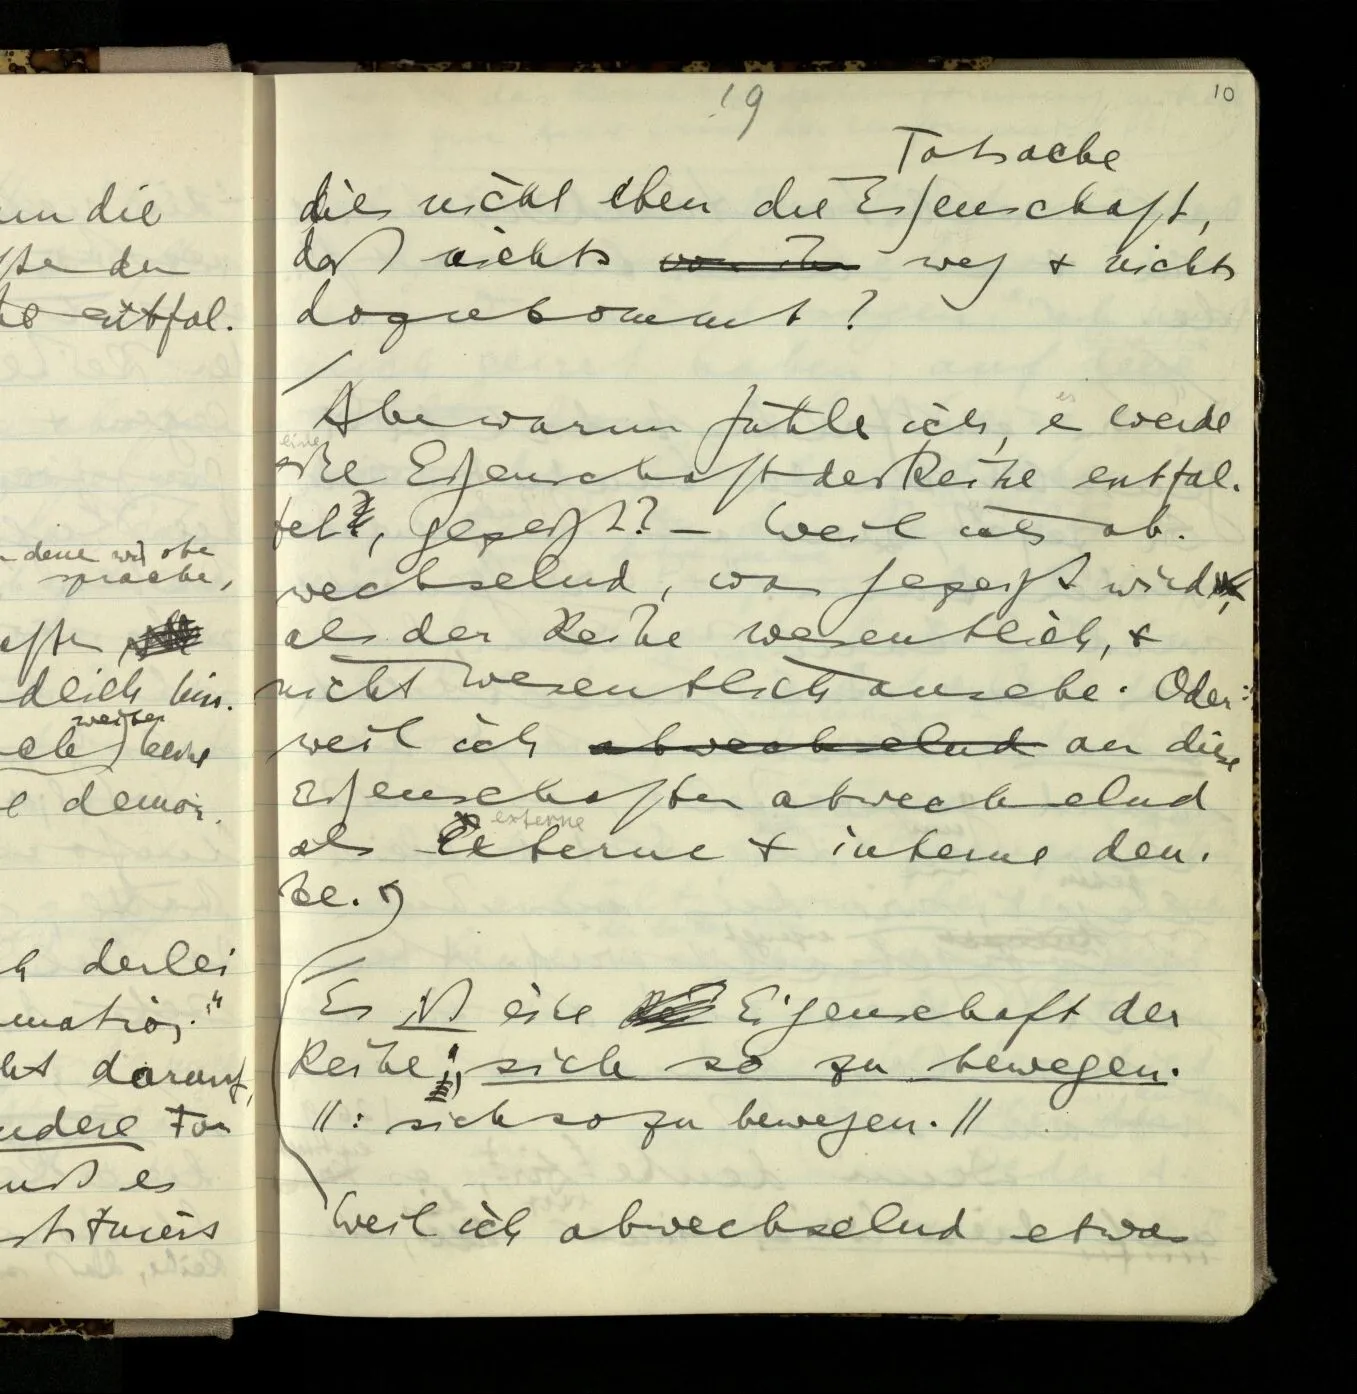 um die
der
entfal.
denen wir oben
sprachen,
dlich hin.
weiter
keine
e demon.
h derlei
mation."
ht darauf,
ndere For
muß es
19
10
Tatsache
dies nicht eben die Eigenschaft,
daß nichts von ihr weg & nichts
dazukommt ?
es
Aber warum fühle ich, es werde
eine
eine Eigenschaft der Reihe entfal.
tet, gezeigt? – Weil ich ab.
wechselnd, was gezeigt wird,
als der Reihe wesentlich, &
nicht wesentlich ansehe. Oder:
weil ich abwechselnd an diese
Eigenschaften abwechselnd
externe
als externe & interne den.
ke.
Es ist eine Eigenschaft der
Reihe; sich so zu bewegen.
// : sich so zu bewegen. //
Weil ich abwechselnd etwas